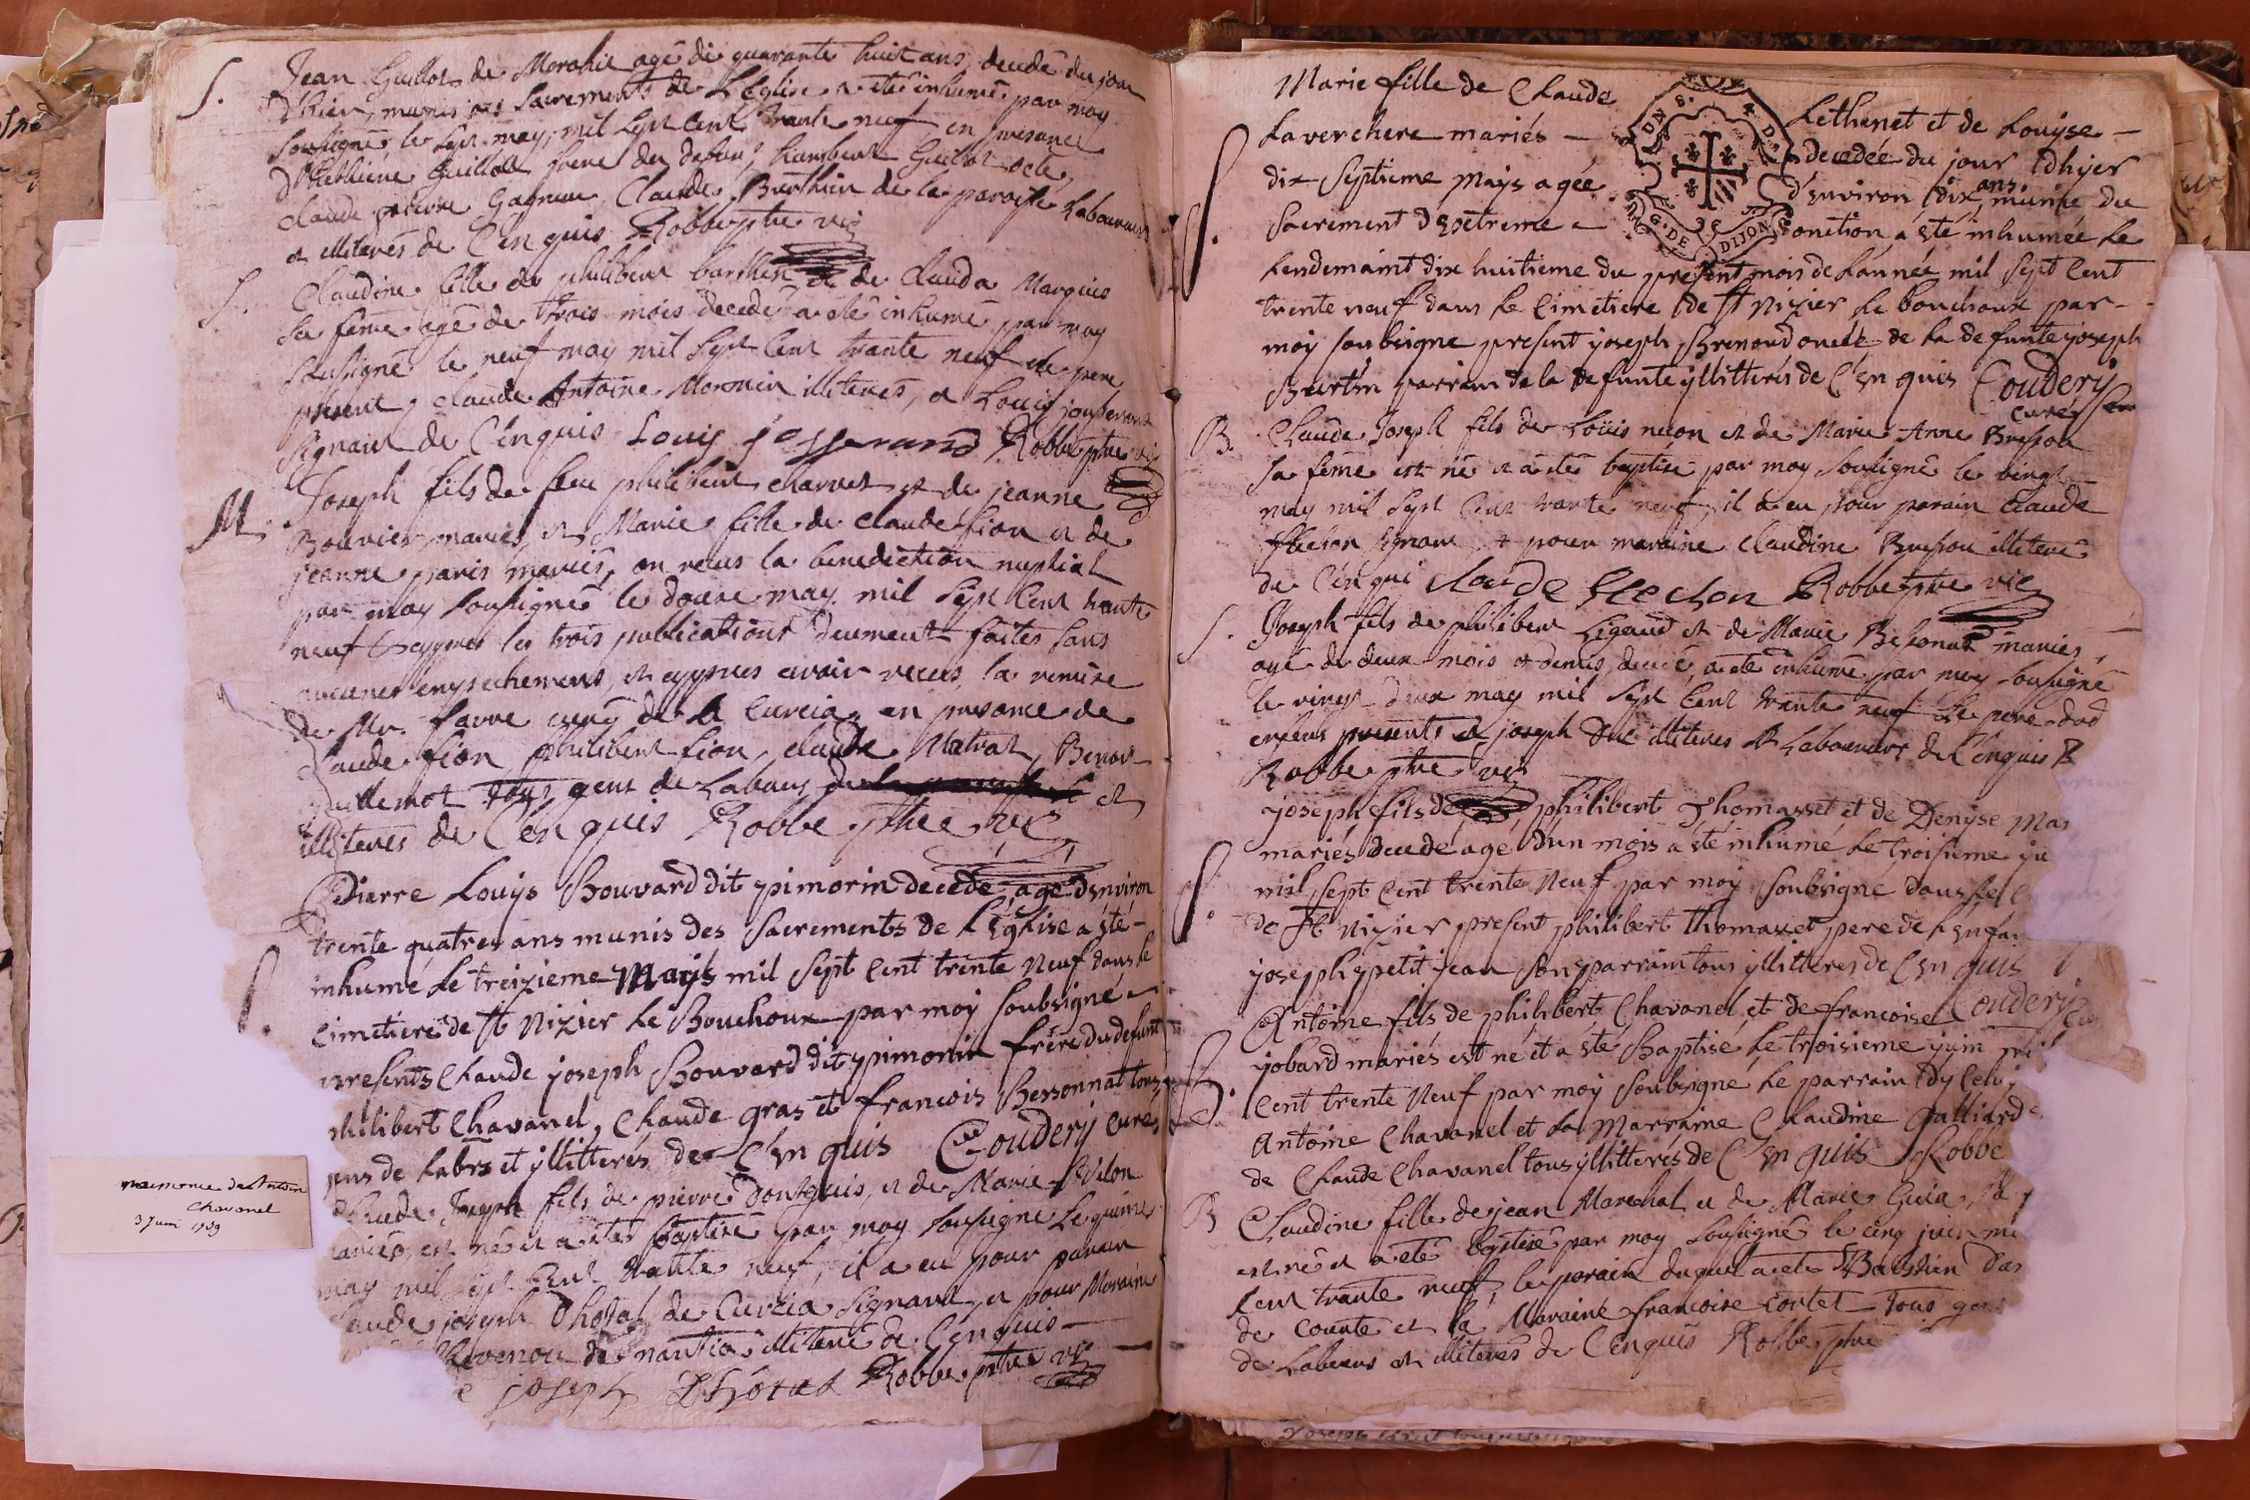 S. Jean Guillot de Moraniè agé de quarante huit ans, decedé du jour
d'hier, munis des Sacrements de L'Eglise a été inhumé par moy
Soussigné le Sept may, mil Sept Cent trante neuf, en presance
d'Esthiene Guillot frere du defunt, humbert Guillot
claude pierre Gagneur, Claude Burthin de la paroisse Laboureurs
et illiterés de C'enquis Robbe ptre vic
S. Claudine fille de philibert barthin et de Clauda Marquis
Sa feme agé de trois mois decedé a été inhumé par moy
Soussigné le neuf may mil Sept Cent trante neuf le pere
present, claude Antoine Mormin illiterés, et Louis josserand
Signant de C'enquis Louis josserand Robbe ptre vic
M. Joseph fils de feu philibert charvet et de jeanne
Bouvier mariés, et Marie fille de claude fion et de
jeanne paris mariés, on recus la benediction nuptial
par moy Soussigné le douze may mil Sept Cent trante
neuf appres les trois publications deument faites Sans
aucuner empechemens, et appres avoir receus la remise
de Mr. favre curé de la Curcia, en presance de
Claude fion, philibert fion, claude Matrat, Benoit
guillemot tous gens de Labeurs et
illiterés de C'enquis Robbe ptre vic
S. Pierre Louys Bouvard dit pimorin decedé agé d'Environ
trente quatres ans munis des Sacrements de L'Eglise a été
inhumé Le treizieme Mays mil Sept Cent trente Neuf dans le
Cimetiere de St Nizier Le Bouchoux par moy Soubsigné
presents Claude joseph Bouvard dit pimorin frère du defunt
philibert Chavanel, Claude gras et francois Bersonnat tous
gens de Labrs et yllitterés de C'En quis Couderij Curé
Claude Joseph fils de pierre Donguis, et de Marie Vilon
mariés, est né et a été baptisé par moy Soussigné Le quinze
may mil Sept Cent trante neuf, il a eu pour parain
claude joseph Dhotal de Curcia Signant, et pour Moraine
de nantia illiteré de C'enquis
joseph Dhotal Robbe ptre vic
naissance de Antoine
Chavanel
3 Juin 1739
S. Marie fille de Claude Lethenet et de Louyse
Laverchere mariés decedée du jour d'hyer
dix Septieme Mays agée d'Environ dix ans munie du
Sacrement d'Extreme onction a été inhumée Le
Lendemaint dix huitieme du present mois de L'année mil Sept Cent
trente neuf dans Le Cimetiere de St Nizier Le bouchoux par
moy Soubsigné present joseph Brenoud oncle de La defunte joseph
Burtin parrain de la defunte yllitterés de C'En quis Couderij
Curé
DNS. G. DE DIJON
B. Claude Joseph fils de Loüis neron et de Marie Anne Bressou
Sa féme est né et a été baptisé par moy Soussigné le vingt
may mil Sept Cent trante neuf, il a eu pour parain Claude
flechon Signant et pour maraine claudine Bressou illiteré
de C'enqui claude flechon Robbe ptre vic
S. Joseph fils de philibert Ligaud et de Marie Besonat mariés
agé de deux mois et demis, decedé, a été inhumé par moy Soussigné
le vingt deux may mil Sept Cent trante neuf Le pere dud
enfant presents et joseph illiterés et Laboureurs de C'enquis
Robbe ptre vic
S. joseph fils de philibert Thomasset et de Denyse
mariés decedé agé d'un mois a été inhumé Le troisieme
mil Sept Cent trente Neuf par moy Soubsigné dans Le
de St Nizier present philibert thomasset pere de L'Enfant
joseph petitjean Son parrain tous yllitterés de C'En quis
B. Antoine fils de philibert Chavanel, et de francoise Couderij
jobard mariés est né et a été Baptisé Le troisieme juin
Cent trente Neuf par moy Soubsigné Le parrain d'yCeluy
Antoine Chavanel et La Marraine Claudine Galliard
de Claude Chavanel tous yllitterés de C'En quis Robbe
B Claudine fille de jean Marechal et de Marie Guia,
est né et a été baptisé par moy Soussigné le cinq juin
Cent trante neuf, le parain duquel a été Bastien
de conte et la Maraine francoise cortet tous gens
de Labeurs et illiterés de C'enquis Robbe ptre